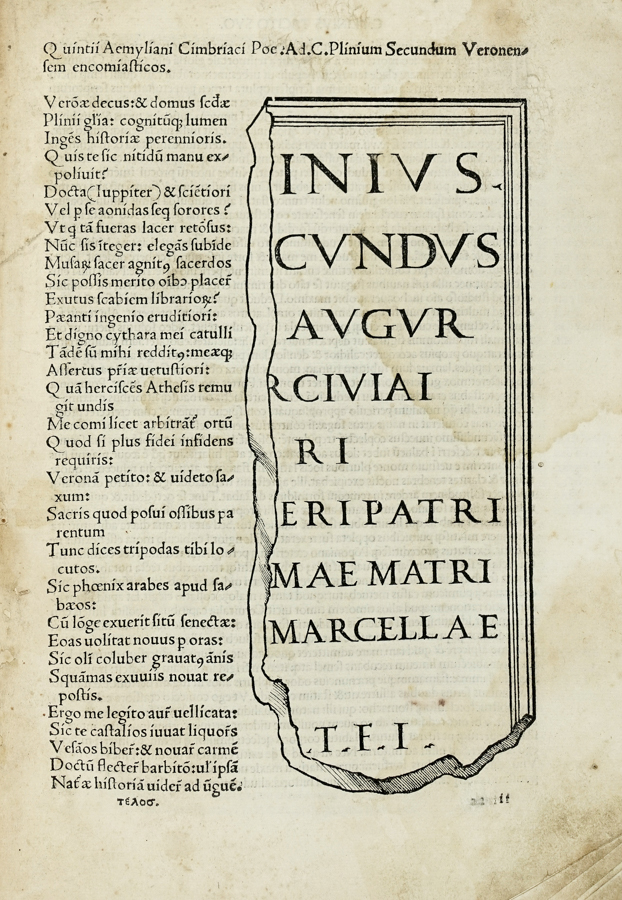 Quintii Aemyliani Cimbriaci Poe. Ad. C. Plinium Secundum Veronen⸗
sem encomiasticos.
Verõæ decus: & domus secd̃æ
Plinii gl̃ia: cognitũq; lumen
Ingẽs historiæ perennioris.
Quis te sic nitidũ manu ex⸗
poliuit?
Docta (Iuppiter) & sciẽtiori
Vel p se aonidas seq sorores?
Vt q tã fueras lacer retõsus:
Nũc sis ĩteger: elegãs subide
Musaꝝ sacer agnitꝯ sacerdos
Sic possis merito oĩbꝯ placer̃
Exutus scabiem librarioꝝ?
Pæanti ingenio eruditiori:
Et digno cythara mei catulli
Tãdẽ sũ mihi redditꝯ: meæq;
Assertus pr̃iæ uetustiori:
Quã herciscẽs Athesis remu
git undis
Me comi licet arbitrãt̃ ortũ
Quod si plus fidei infidens
requiris:
Veronã petito: & uideto sa⸗
xum:
Sacris quod posui ossibus pa
rentum
Tunc dices tripodas tibi lo⸗
cutos.
Sic phœnix arabes apud sa⸗
bæos:
Cũ lõge exuerit sitũ senectæ:
Eoas uolitat nouus p oras:
Sic oli coluber grauatꝯ ãnis
Squãmas exuuiis nouat re⸗
postis.
Ergo me legito aur̃ uellicata:
Sic te castalios iuuat liquor̃s
Vesãos biber̃: & nouar̃ carmẽ
Doctũ flecter̃ barbitõ: ul ipsã
Nat̃æ historiã uider̃ ad ũguẽ.
τέλοσ.
INIVS.
CVNDVS
AVGVR
RCIVIAI
RI
ERI PATRI
MAE MATRI
MARCELLAE
.T.F.I.